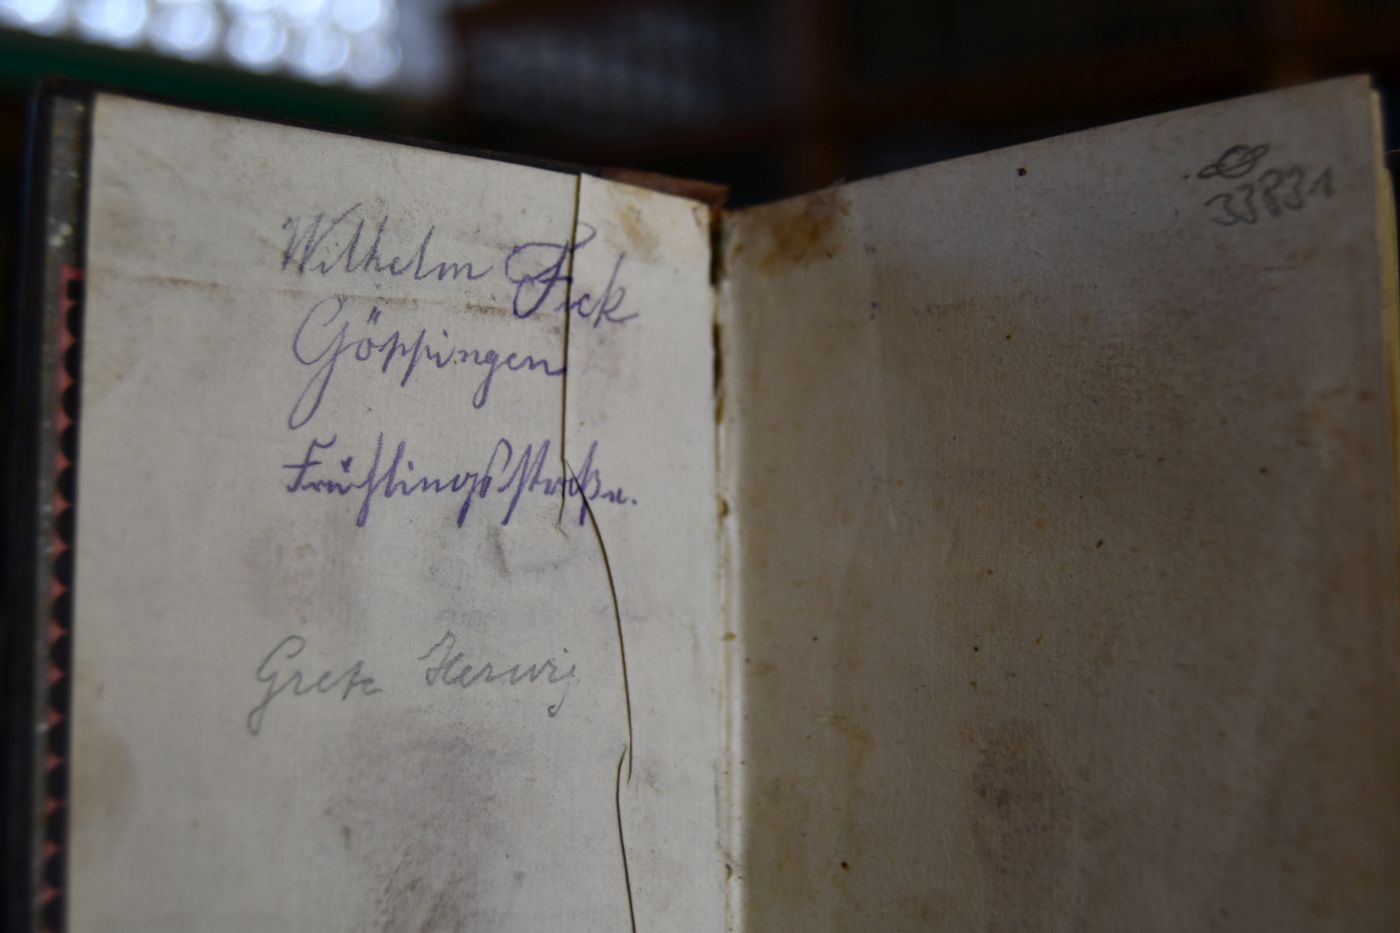 Wilhelm Fick
Göppingen
Frühlingsstraße.
Grete Herwig
33831